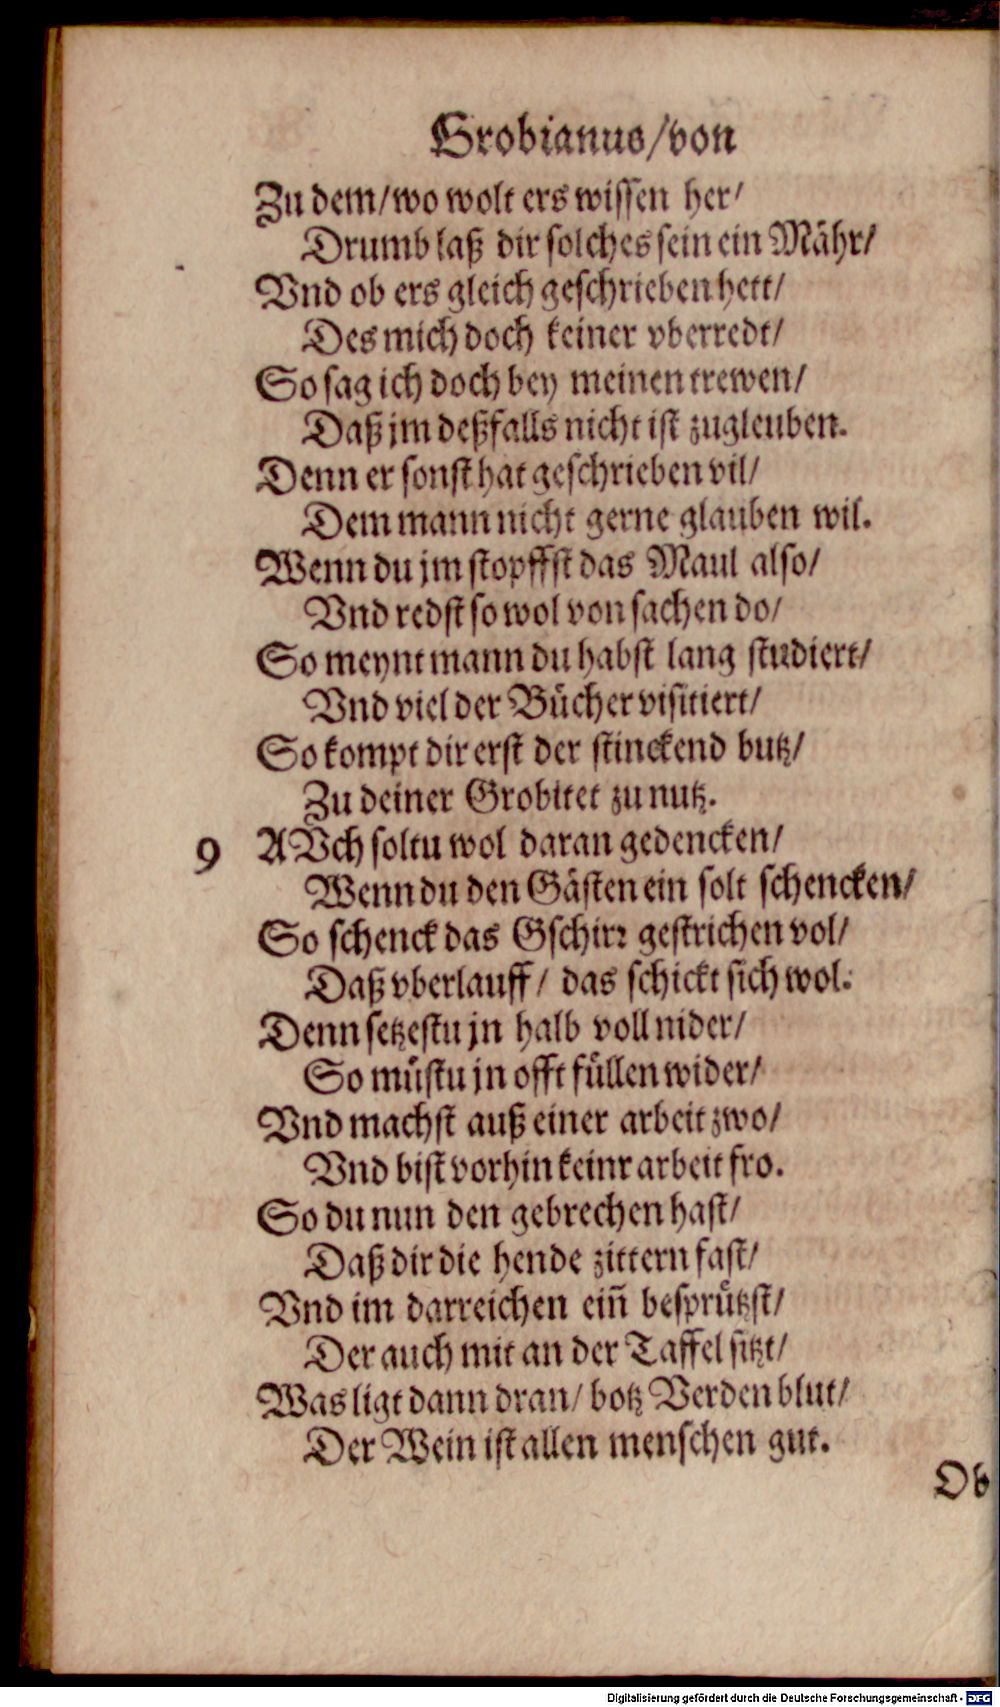 Grobianus/von
Zu dem/wo wolt ers wissen her/
Drumb laß dir solches sein ein Mähr/
Vnd ob ers gleich geschrieben hett/
Des mich doch keiner vberredt/
So sag ich doch bey meinen trewen/
Daß jm deßfalls nicht ist zugleuben.
Denn er sonst hat geschrieben vil/
Dem mann nicht gerne glauben wil.
Wenn du jm stopffst das Maul also/
Vnd redst so wol von sachen do/
So meynt mann du habst lang studiert/
Vnd viel der Bücher visitiert/
So kompt dir erst der stinckend butz/
Zu deiner Grobitet zu nutz.
9 AVch soltu wol daran gedencken/
Wenn du den Gästen ein solt schencken/
So schenck das Gschirr gestrichen vol/
Daß vberlauff/ das schickt sich wol:
Denn setzestu jn halb voll nider/
So müstu jn offt füllen wider/
Vnd machst auß einer arbeit zwo/
Vnd bist vorhin keinr arbeit fro.
So du nun den gebrechen hast/
Daß dir die hende zittern fast/
Vnd im darreichen ein̄ besprützst/
Der auch mit an der Taffel sitzt/
Was ligt dann dran/ botz Verden blut/
Der Wein ist allen menschen gut.
Ob
Digitalisierung gefördert durch die Deutsche Forschungsgemeinschaft - DFG